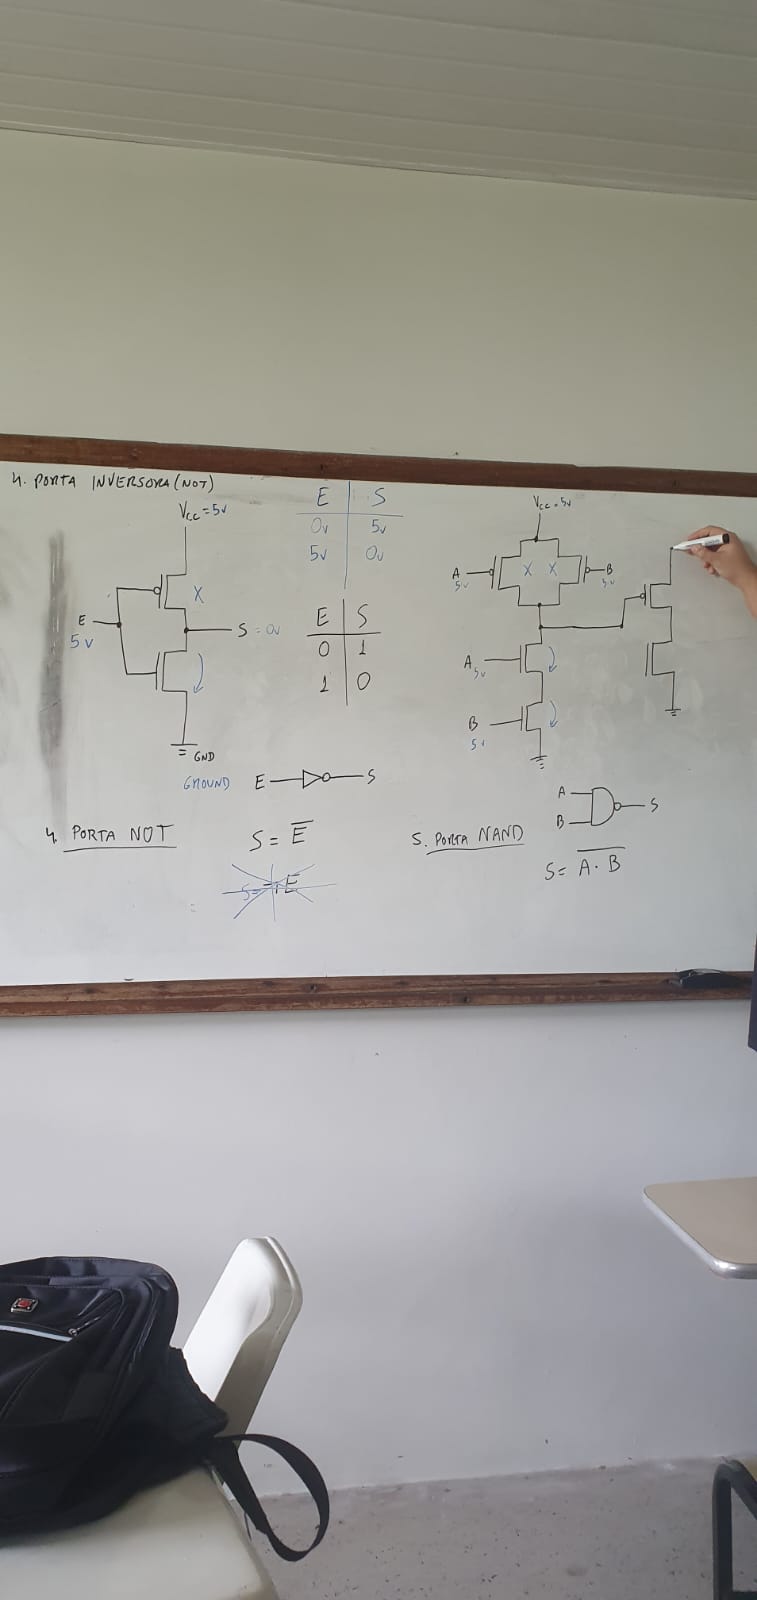 4. PORTA INVERSORA (NOT)
Vcc = 5v
E
5v
X
S = 0v
GND
GROUND
E S
0v 5v
5v 0v
E S
0 1
1 0
E S
4. PORTA NOT
S = E̅
Vcc = 5v
A
5v
X X
B
5v
A
5v
B
5v
A
B
S
5. PORTA NAND
S = A̅ ̅·̅ ̅B̅